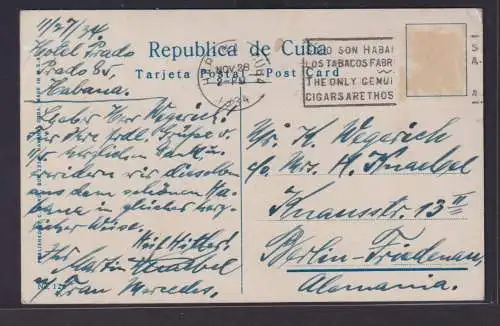 11/27/34
Hotel Prado
Prado 85,
Habana.
Republica de Cuba
Tarjeta Postal Post Card
HABANA, CUBA
NOV 28
2-PM
1934
NO SON HABA
LOS TABACOS FABR
THE ONLY GENUI
CIGARS ARE THOS
Lieber Herr Wegerich.
Für Ihre frdl. Grüße u.
herzlichen Dank u.
erwidern wir dieselben
aus dem schönen Ha-
bana in gleicher herz-
licher Weise.
Heil Hitler!
Ihr
Martin Knaebel
u. Frau Mercedes.
H. Wegerich
c/o Mrs. H. Knaebel
Knausstr. 13 II
Berlin-Friedenau,
Alemania.